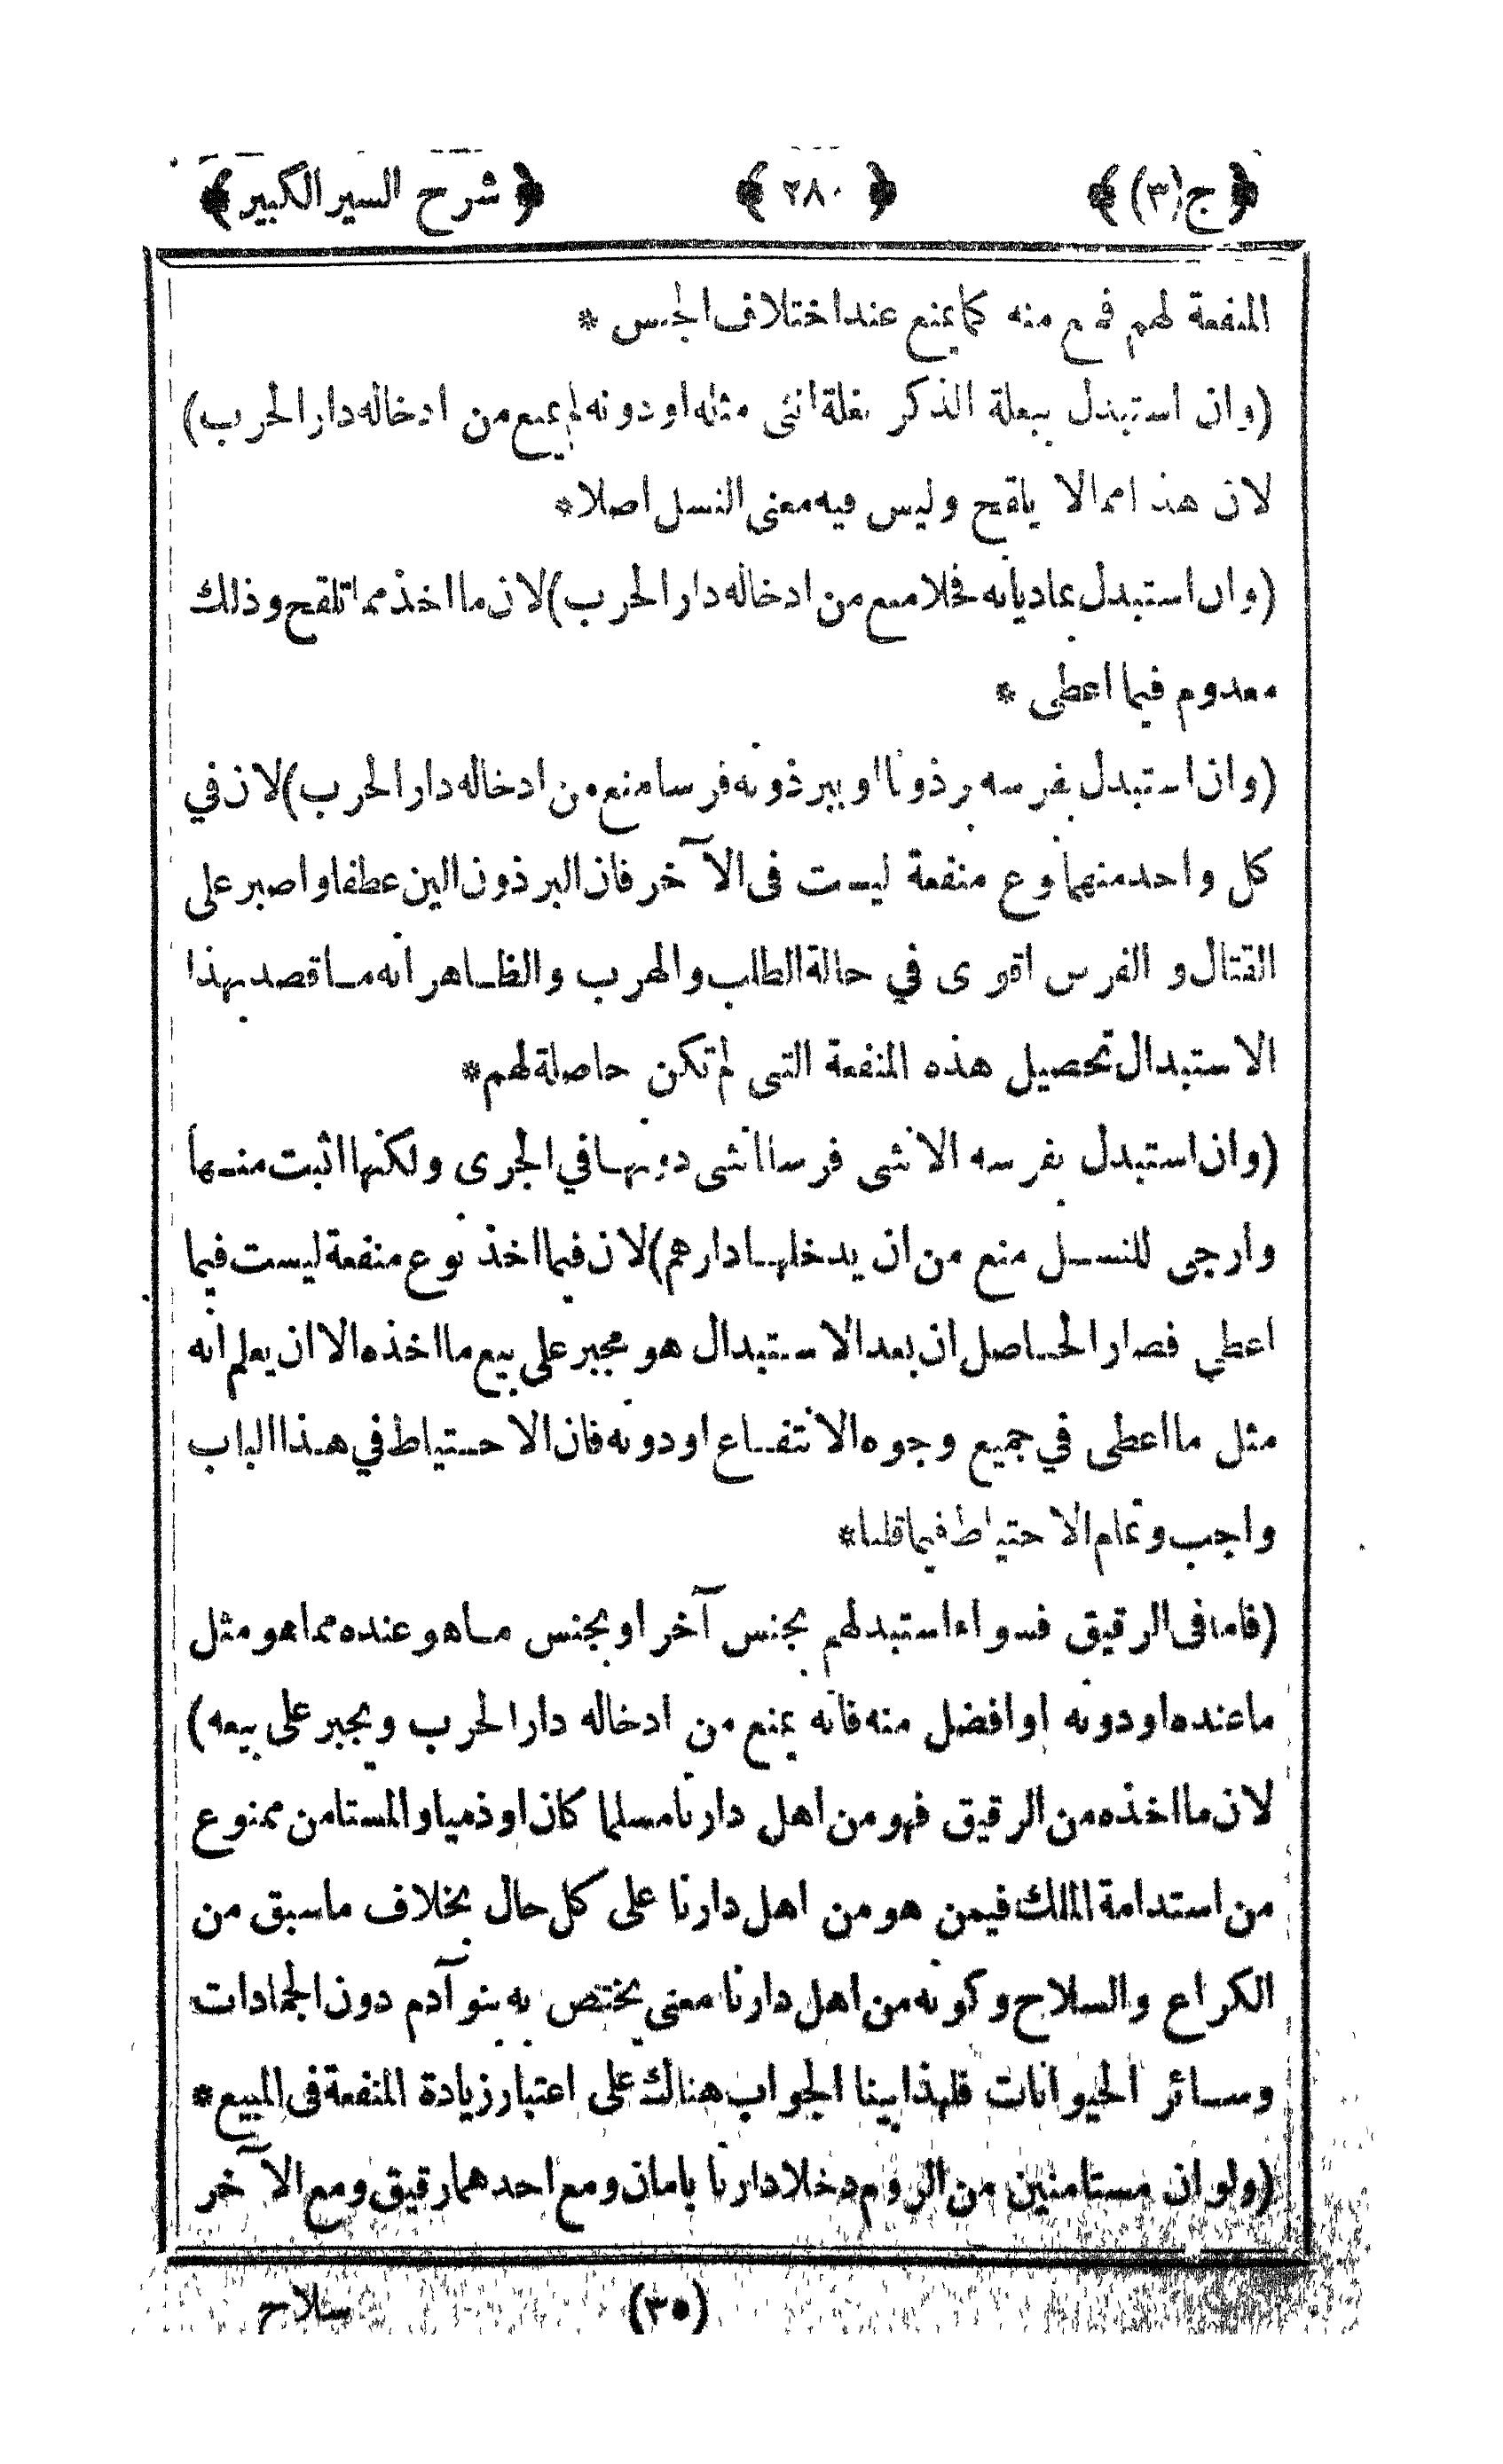 ﴿ج(٣)﴾ ﴿٢٨٠﴾ ﴿شرح السير الكبير﴾
المنفعة لهم فمنع منه كما يمنع عند اختلاف الجنس *
(وان استبدل ببغلة الذكر بغلة انثى مثله او دونه لم يمنع من ادخاله دار الحرب)
لان هذا مما لا يلقح وليس فيه معنى النسل اصلا*
(وان استبدل بماديانه فحلا منع من ادخاله دار الحرب) لان ما اخذ مما تلقح وذلك
معدوم فيما اعطى *
(وان استبدل بفرسه برذونا او ببرذونه فرسا منع من ادخاله دار الحرب) لان في
كل واحد منهما نوع منفعة ليست فى الآخر فان البرذون الين عطفا واصبر على
القتال و الفرس اقوى في حالة الطلب والهرب والظاهر انه ما قصد بهذا
الاستبدال تحصيل هذه المنفعة التى لم تكن حاصلة لهم*
(وان استبدل بفرسه الانثى فرسا انثى دونها في الجرى ولكنها اثبت منها
وارجى للنسل منع من ان يدخلها دارهم) لان فيما اخذ نوع منفعة ليست فيما
اعطي فصار الحاصل ان بعد الاستبدال هو مجبر على بيع ما اخذه الا ان يعلم انه
مثل ما اعطى في جميع وجوه الانتفاع او دونه فان الاحتياط في هذا الباب
واجب وتمام الاحتياط فيما قلنا*
(فاما فى الرقيق فسواء استبدلهم بجنس آخر او بجنس ما هو عنده مما هو مثل
ما عنده او دونه او افضل منه فانه يمنع من ادخاله دار الحرب ويجبر على بيعه)
لان ما اخذه من الرقيق فهو من اهل دارنا مسلما كان او ذميا والمستامن ممنوع
من استدامة الملك فيمن هو من اهل دارنا على كل حال بخلاف ما سبق من
الكراع والسلاح وكونه من اهل دارنا معنى يختص به بنو آدم دون الجمادات
وسائر الحيوانات فلهذا بينا الجواب هناك على اعتبار زيادة المنفعة فى المبيع*
(ولو ان مستامنين من الروم دخلا دارنا بامان ومع احدهما رقيق ومع الآخر
(٣٥) سلاح